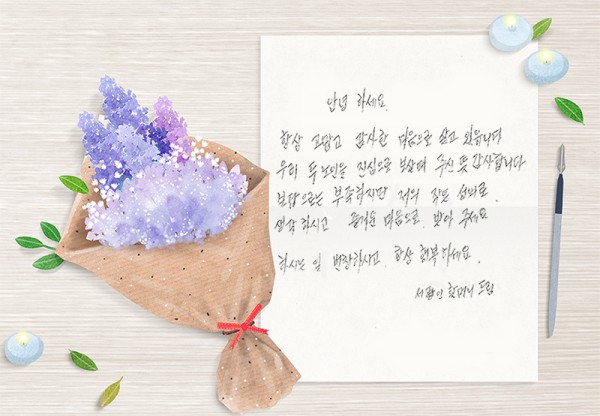 안녕 하세요.
항상 고맙고 감사한 마음으로 살고 있읍니다
우리 두 노인을 진심으로 보살펴 주신 뜻 감사합니다
보답으로는 부족하지만 저의 작은 성의로
생각 하시고 즐거운 마음으로 받아 주세요
하시는 일 번창하시고. 항상 행복하세요.
할머니 드림